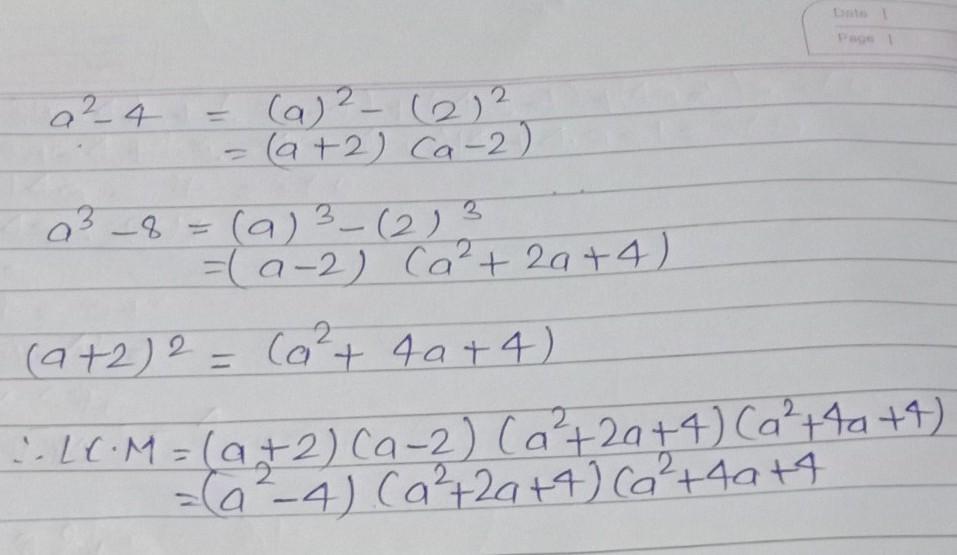 Date
Page
a² - 4 = (a)² - (2)²
= (a+2) (a-2)
a³ - 8 = (a)³ - (2)³
= (a-2) (a² + 2a + 4)
(a+2)² = (a² + 4a + 4)
∴ LC.M = (a+2) (a-2) (a²+2a+4) (a²+4a+4)
= (a²-4) (a²+2a+4) (a²+4a+4